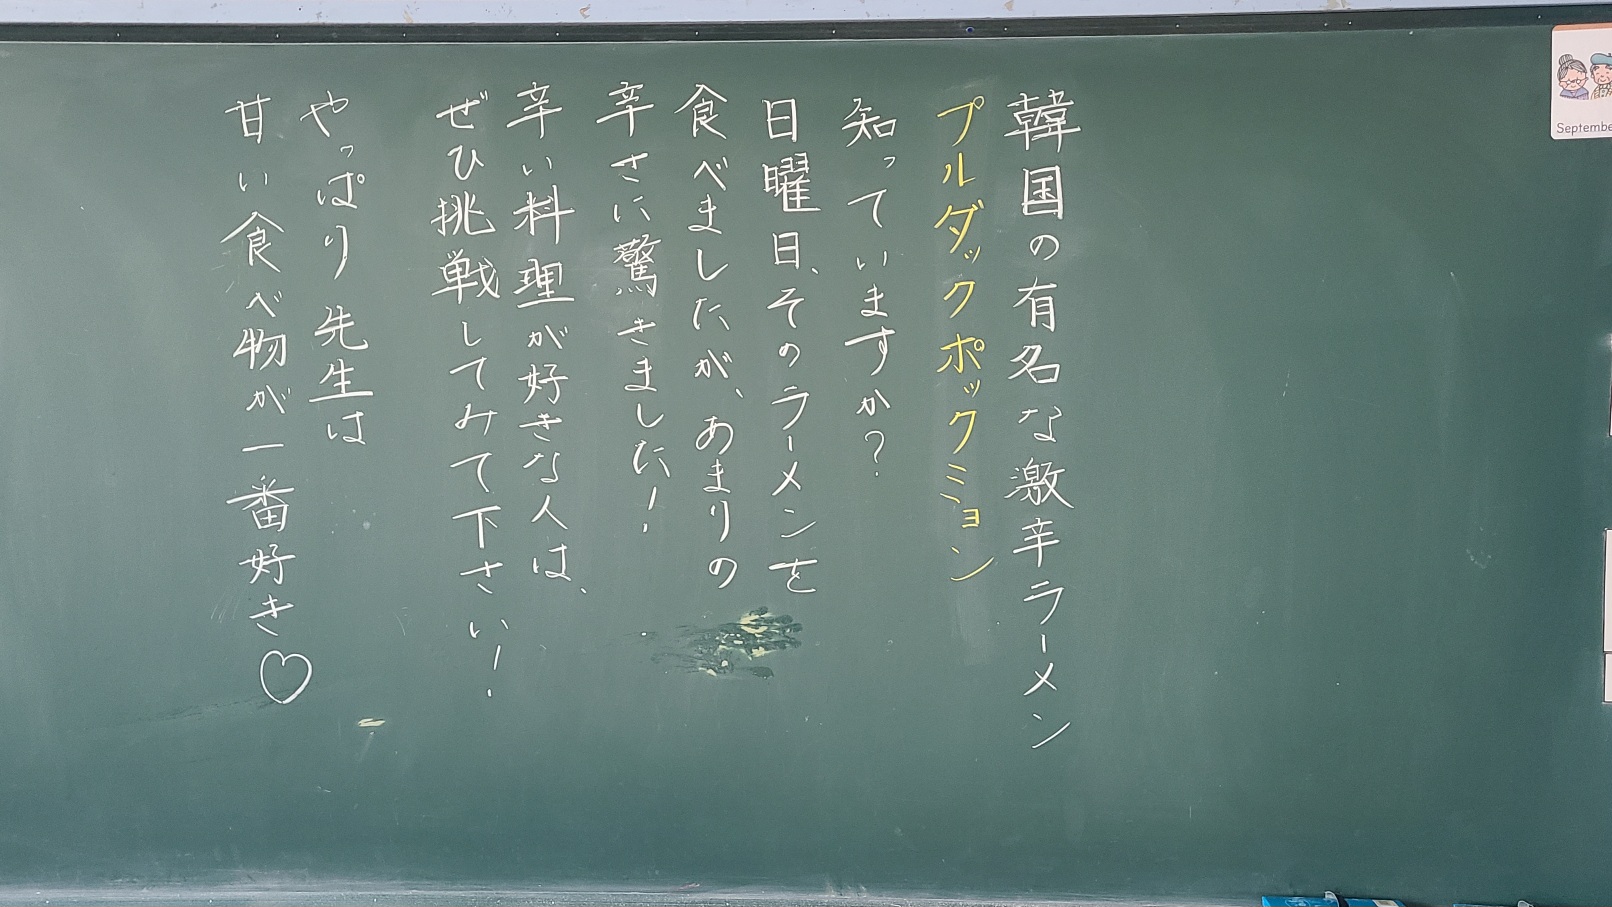 韓国の有名な激辛ラーメン
プルダックポックミョン
知っていますか?
日曜日、そのラーメンを
食べましたが、あまりの
辛さに驚きました!
辛い料理が好きな人は、
ぜひ挑戦してみて下さい!
やっぱり先生は
甘い食べ物が一番好き♡
Septembe